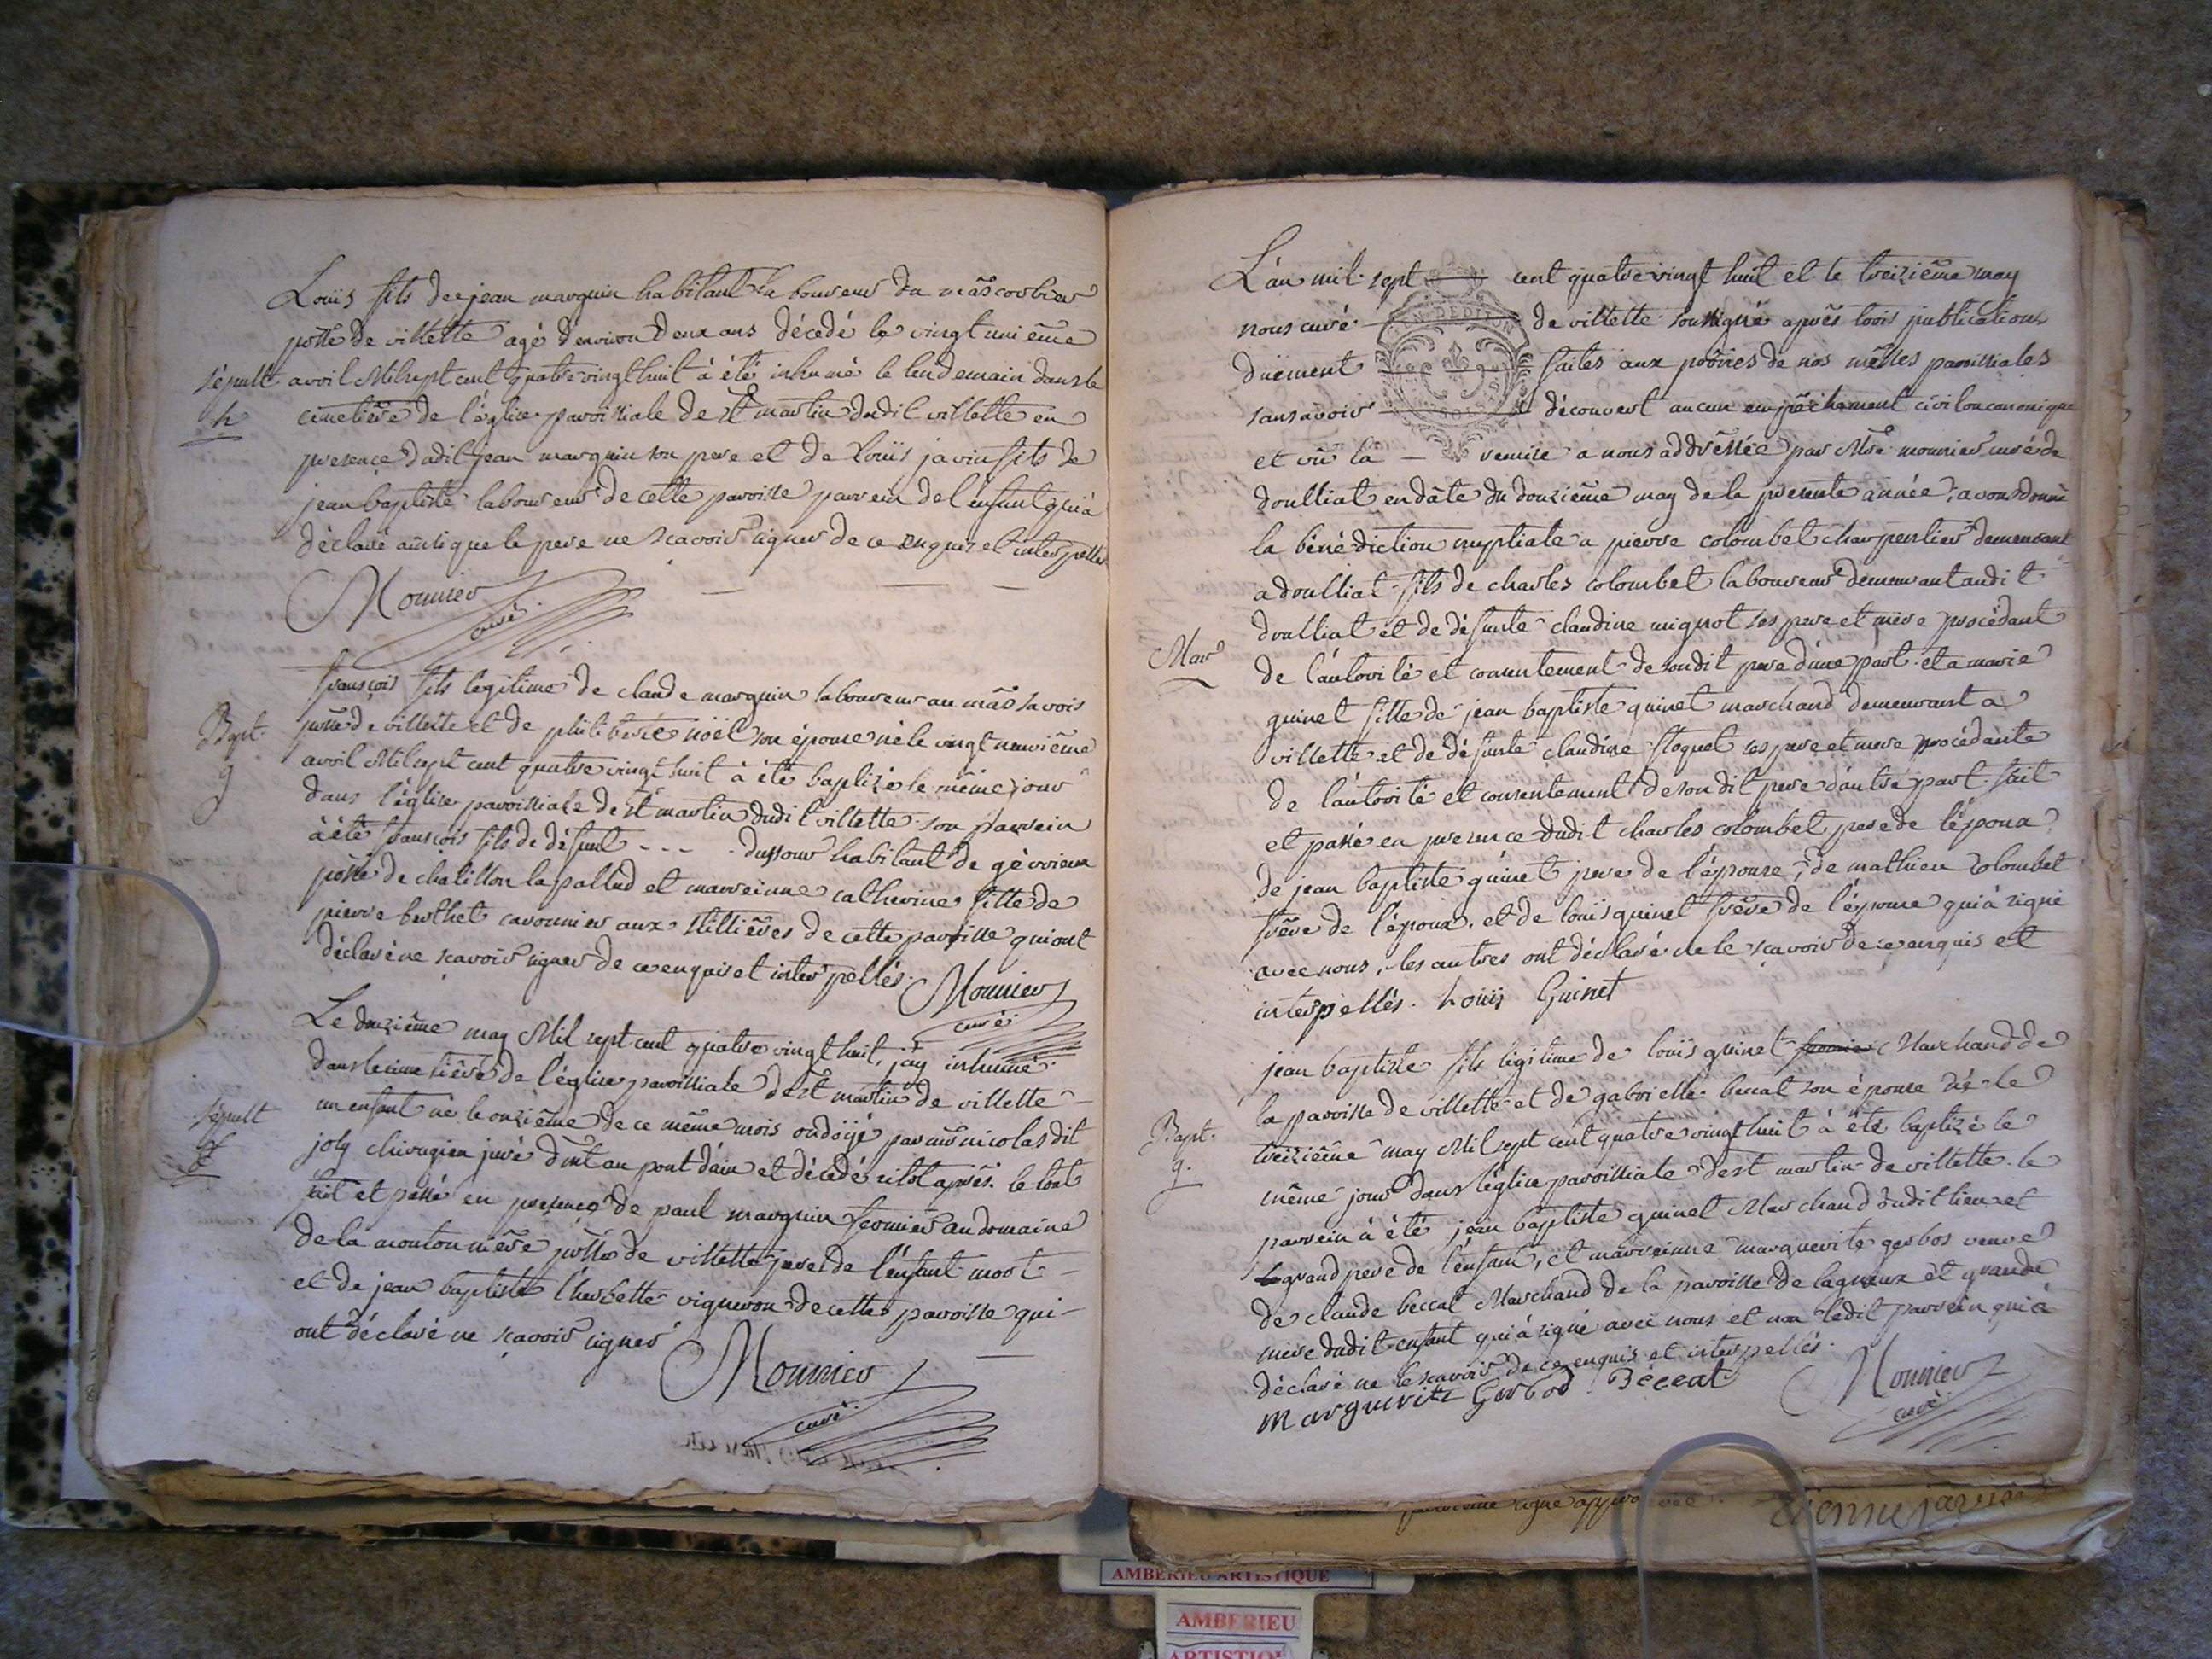 Loüis fils de jean marguin habitant laboureur du mâs corbier
pôsse de villette agé d'environ deux ans décedé le vingt unième
sépult. avril Mil sept cent quatre vingt huit à été inhumé le lendemain dans le
h cimetière de l'église paroissiale de st martin dudit villette en
presence dudit jean marguin son pere et de Loüis javin fils de
jean baptiste laboureur de cette paroisse parrein de l'enfant qui à
déclaré ainsi que le pere ne scavoir signer de ce enquis et interpellés
Monnier
curé
françois fils legitime de claude marguin laboureur au mâs savois
Bapt. pôsse de villette et de philiberte nöël son épouse né le vingt neuvième
g avril Mil sept cent quatre vingt huit à été baptizé le même jour
dans l'église paroissiale de st martin dudit villette son parrein
à été françois fils de défunt - - - dufour habitant de gévrieux
pôsse de chatillon la pallud et marreinne catherine fille de
pierre berthet cavonnier aux Millières de cette paroisse qui ont
déclaré ne scavoir signer de ce enquis et interpellés. Monnier
curé
Le douzième may Mil sept cent quatre vingt huit, j'ay inhumé
dans le cimetière de l'église paroissiale de st martin de villette
sépult un enfant né le onzième de ce même mois ondoÿé par mr nicolas dit
joly chirurgien juré dmt au pont d'ain et décédé sitot après. le tout
fait et passé en presence de paul marguin fermier au domaine
de la moutonnière pôsse de villette pere de l'enfant mort
et de jean baptiste l'herbette vigneron de cette paroisse qui
ont déclaré ne scavoir signer
Monnier
curé
L'an mil sept cent quatre vingt huit et le treizième may
nous curé de villette soussigné après trois publications
düement faites aux prônes de nos messes paroissiales
sans avoir découvert aucun empêchement civil ou canonique
et vû la remise a nous addressée par Mre monnier curé de
doulliat en dâte du douzième may de la presente année, avons donné
la bénédiction nuptiale a pierre colombet charpentier demeurant
a doulliat fils de charles colombet laboureur demeurant audit
doulliat et de défunte claudine mignot ses pere et mere procédant
Mar de l'autorité et consentement de sondit pere d'une part et a marie
guinet fille de jean baptiste guinet marchand demeurant a
villette et de défunte claudine floquet ses pere et mere procédante
de l'autorité et consentement de son dit pere d'autre part fait
et passé en presence dudit charles colombet pere de l'époux
de jean baptiste guinet pere de l'épouse, de mathieu colombet
frère de l'époux, et de loüis guinet frère de l'épouse qui à signé
avec nous, les autres ont déclaré ne le scavoir de ce enquis et
interpellés. Loüis Guinet
jean baptiste fils légitime de loüis guinet fermier Marchand de
la paroisse de villette et de gabrielle beccat son épouse né le
Bapt. treizième may Mil sept cent quatre vingt huit à été baptizé le
g. même jour dans l'église paroissiale de st martin de villette. le
parrein à été jean baptiste guinet Marchand dudit lieu et
grand pere de l'enfant, et marreinne marguerite gerbos veuve
de claude beccat Marchand de la paroisse de lagneux et grande
mere dudit enfant qui à signé avec nous et non ledit parrein qui à
déclaré ne le scavoir de ce enquis et interpellés.
Marguerite Gerbod Béccat Monnier
curé
ligne approuvée. etienne javin
AMBERIEU ARTISTIQUE
AMBERIEU
ARTISTIQUE